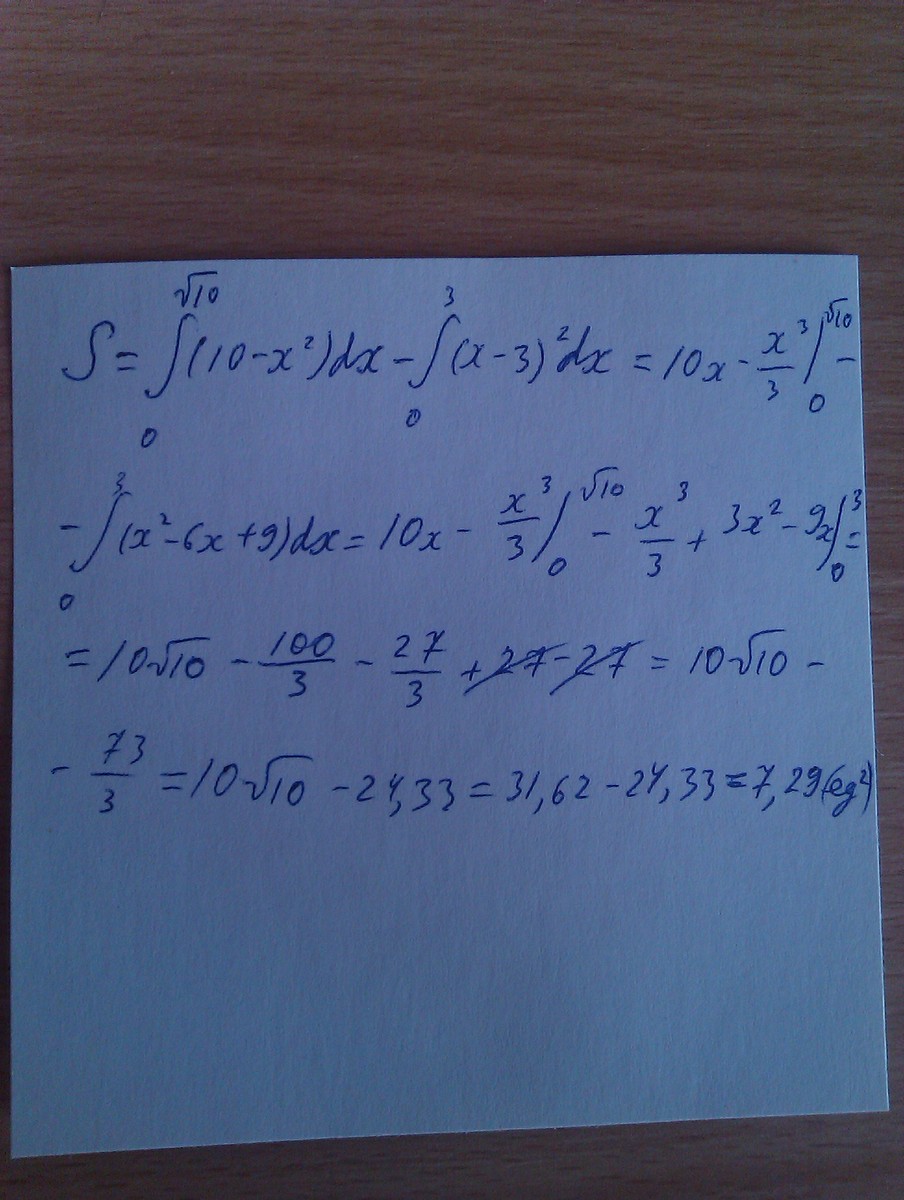 S = ∫₀^√10 (10 - x²)dx - ∫₀³ (x - 3)² dx = 10x - x³/3 |₀^√10 -
- ∫₀³ (x² - 6x + 9)dx = 10x - x³/3 |₀^√10 - x³/3 + 3x² - 9x |₀³ =
= 10√10 - 100/3 - 27/3 + 27 - 27 = 10√10 -
- 73/3 = 10√10 - 24,33 = 31,62 - 24,33 = 7,29 (eg²)